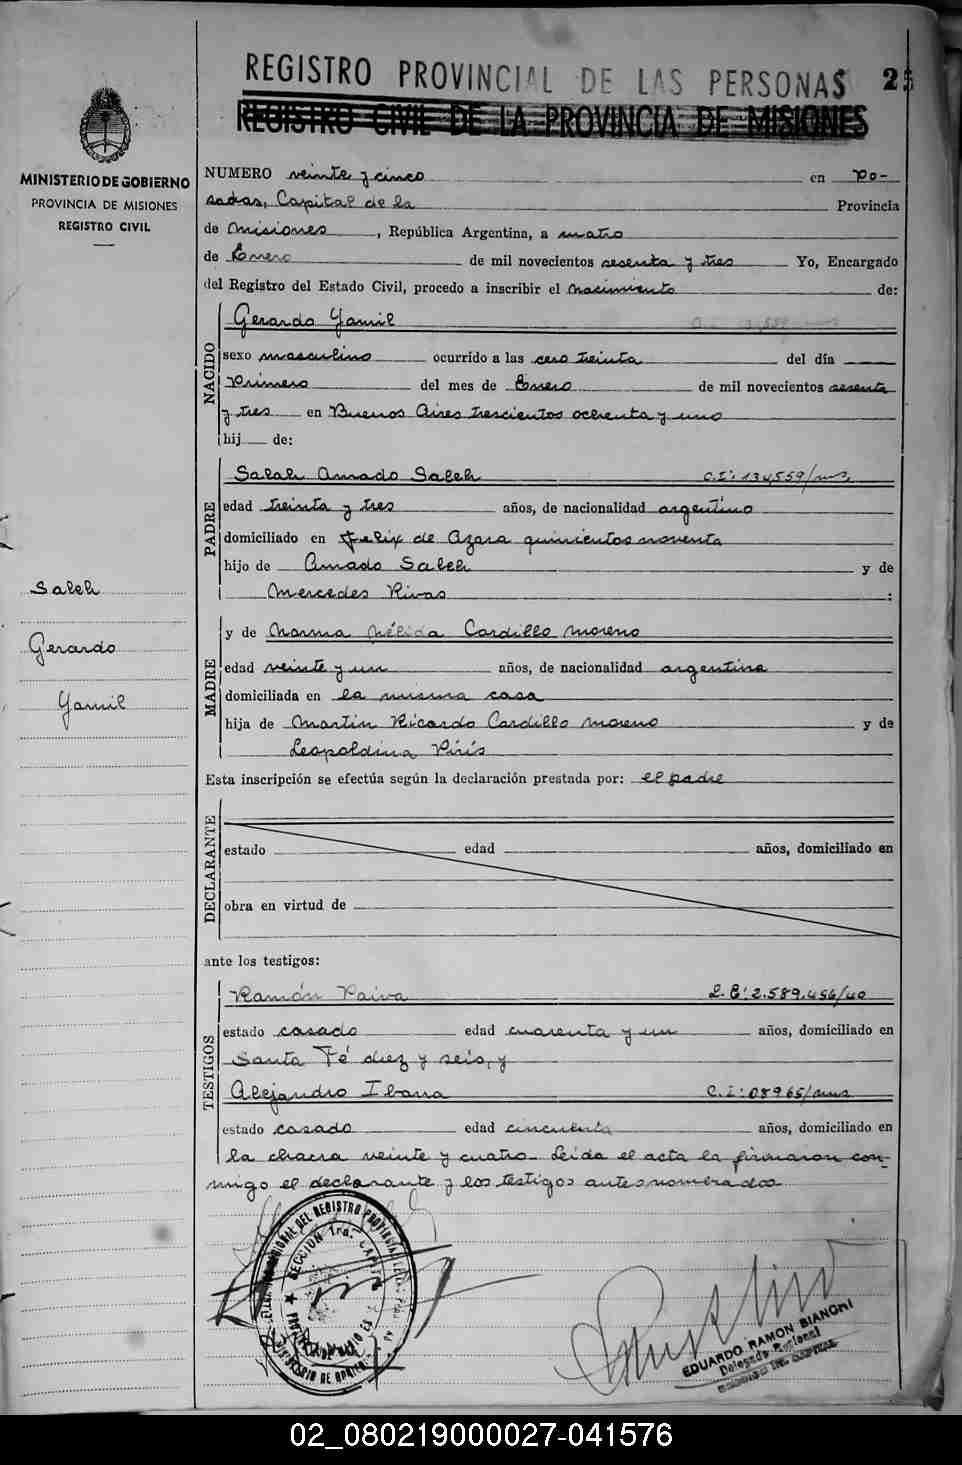 REGISTRO PROVINCIAL DE LAS PERSONAS
25
REGISTRO CIVIL DE LA PROVINCIA DE MISIONES
MINISTERIO DE GOBIERNO
PROVINCIA DE MISIONES
REGISTRO CIVIL
NUMERO veinte y cinco en Po-
sadas, Capital de la Provincia
de Misiones, República Argentina, a cuatro
de Enero de mil novecientos sesenta y tres Yo, Encargado
del Registro del Estado Civil, procedo a inscribir el nacimiento de:
NACIDO
Gerardo Yamil
sexo masculino ocurrido a las cero treinta del día
Primero del mes de Enero de mil novecientos sesenta
y tres en Buenos Aires trescientos ochenta y uno
hij de:
PADRE
Saleh Amado Saleh C.I: 134,559/mns.
edad treinta y tres años, de nacionalidad argentino
domiciliado en Felix de Azara quinientos noventa
hijo de Amado Saleh y de
Mercedes Rivas :
MADRE
y de Norma Nélida Cardillo Moreno
edad veinte y un años, de nacionalidad argentina
domiciliada en la misma casa
hija de Martin Ricardo Cardillo Moreno y de
Leopoldina Piris
Esta inscripción se efectúa según la declaración prestada por: el padre
DECLARANTE
estado edad años, domiciliado en
obra en virtud de
ante los testigos:
TESTIGOS
Ramón Paiva L.E: 2.589.456/40
estado casado edad cuarenta y un años, domiciliado en
Santa Fé diez y seis, y
Alejandro Ibarra C.I: 08965/mns
estado casado edad cincuenta años, domiciliado en
la chacra veinte y cuatro. Leida el acta la firmaron con-
migo el declarante y los testigos antes nombrados
Saleh
Gerardo
Yamil
EDUARDO RAMON BIANCHI
Delegado Regional
02_080219000027-041576